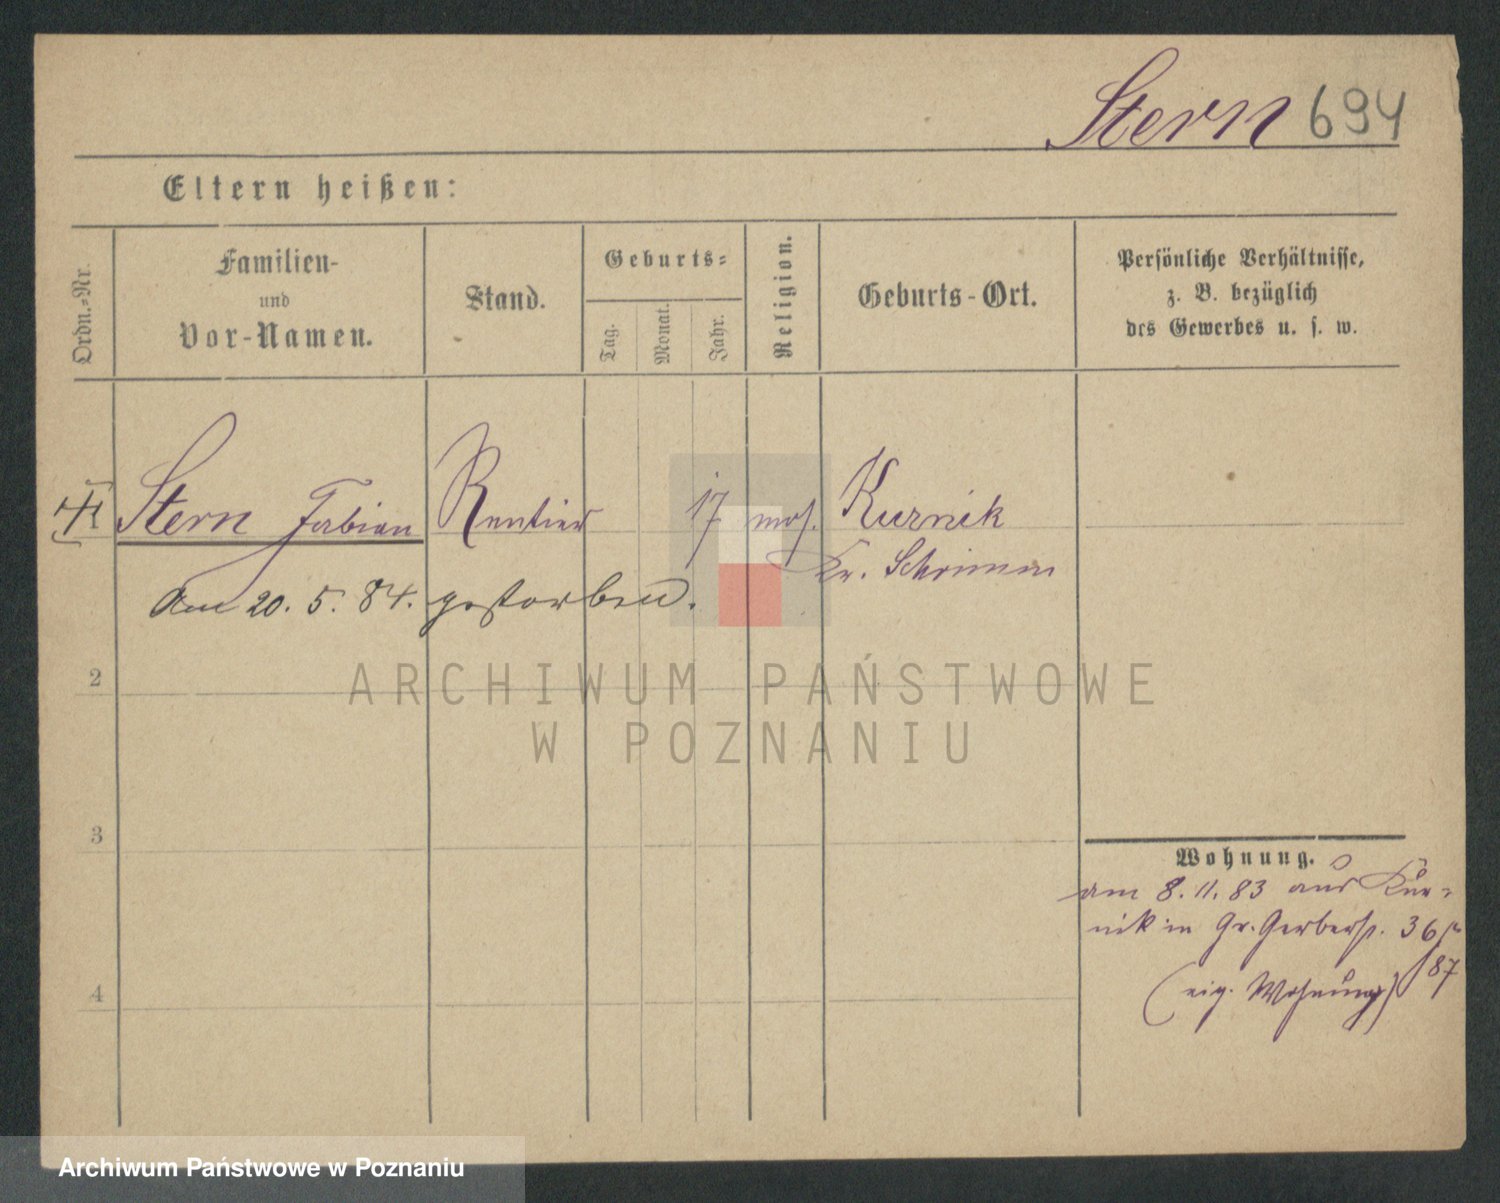 Stern 694
Eltern heißen:
Ordn.=Nr.
Familien-
und
Vor-Namen.
Stand.
Geburts=
Tag.
Monat.
Jahr.
Religion.
Geburts-Ort.
Persönliche Verhältnisse,
z. B. bezüglich
des Gewerbes u. s. w.
Stern Fabian Rentier 17 mos. Kurnik
Kr. Schrimm
Am 20. 5. 84. gestorben.
2
3
4
Wohnung.
am 8. 11. 83 aus Kur=
nik in Gr. Gerberst. 36
(eig. Wohnung) 87
ARCHIWUM PAŃSTWOWE
W POZNANIU
Archiwum Państwowe w Poznaniu